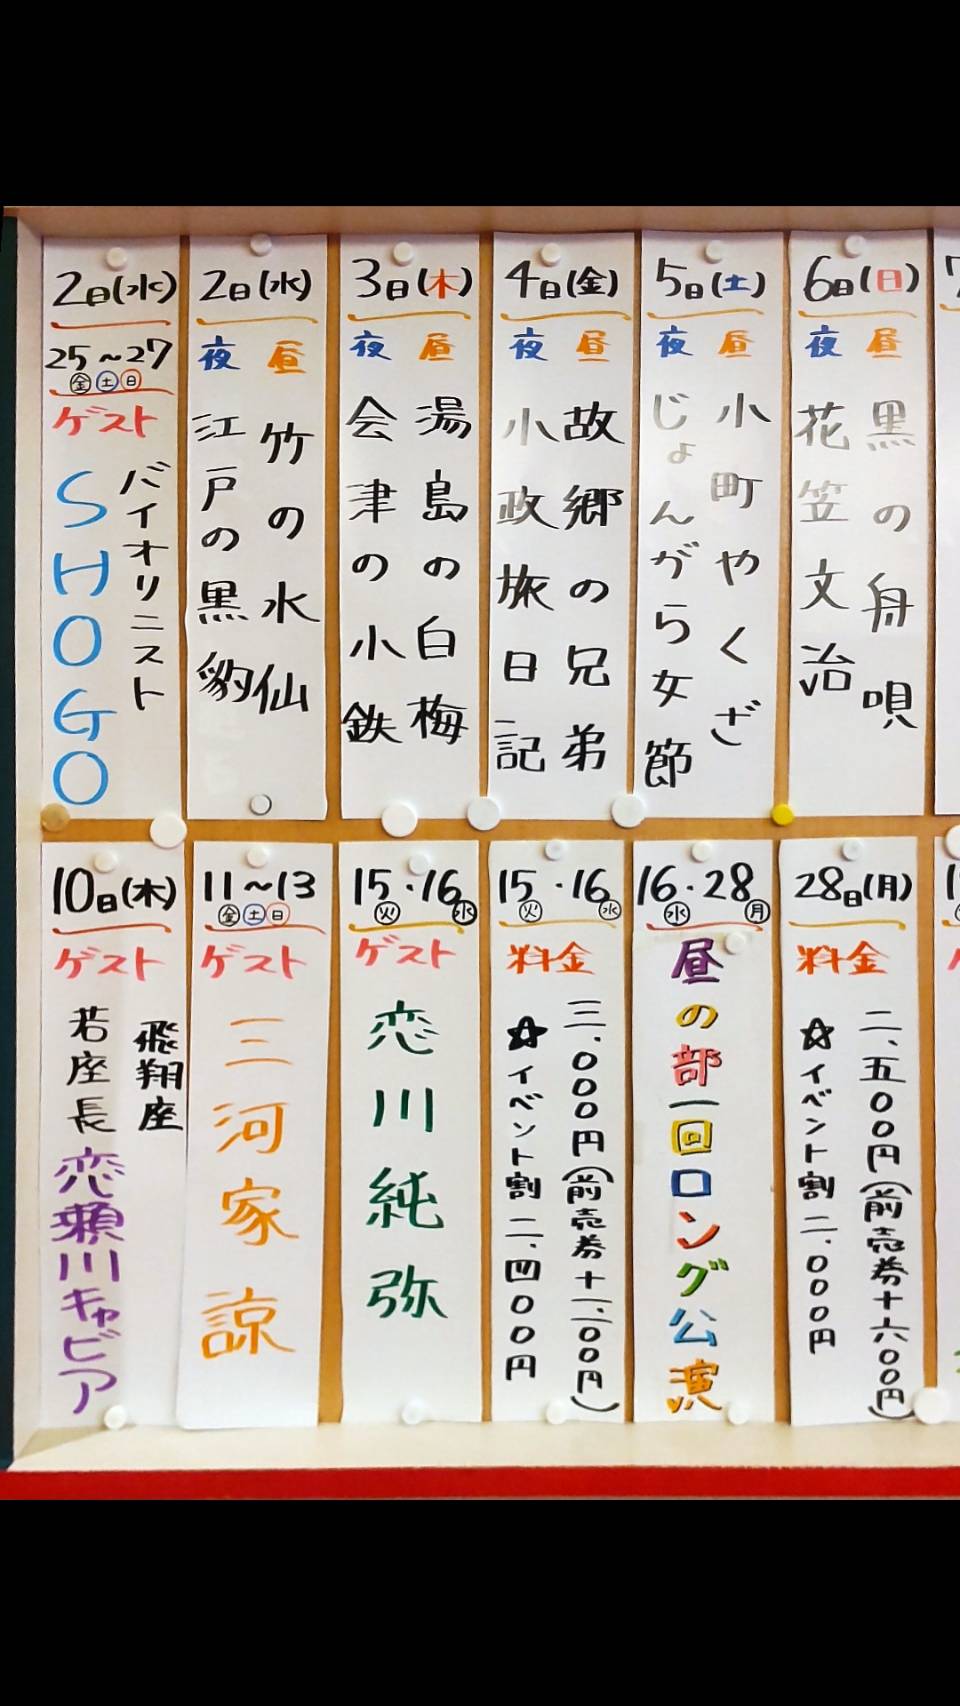 2日(水)
25～27
金土日
ゲスト
バイオリニスト
SHOGO
2日(水)
昼
竹の水仙
夜
江戸の黒豹
3日(木)
昼
湯島の白梅
夜
会津の小鉄
4日(金)
昼
故郷の兄弟
夜
小政旅日記
5日(土)
昼
小町やくざ
夜
じょんがら女節
6日(日)
昼
黒の舟唄
夜
花笠文治
7
10日(木)
ゲスト
飛翔座
若座長
恋瀬川キャビア
11～13
金土日
ゲスト
三河家諒
15・16
火 水
ゲスト
恋川純弥
15・16
火 水
料金
三、000円(前売券十二、00円)
☆イベント割二、四00円
16・28
水 月
昼の部一回ロング公演
28日(月)
料金
二、五00円(前売券十六00円)
☆イベント割二、000円